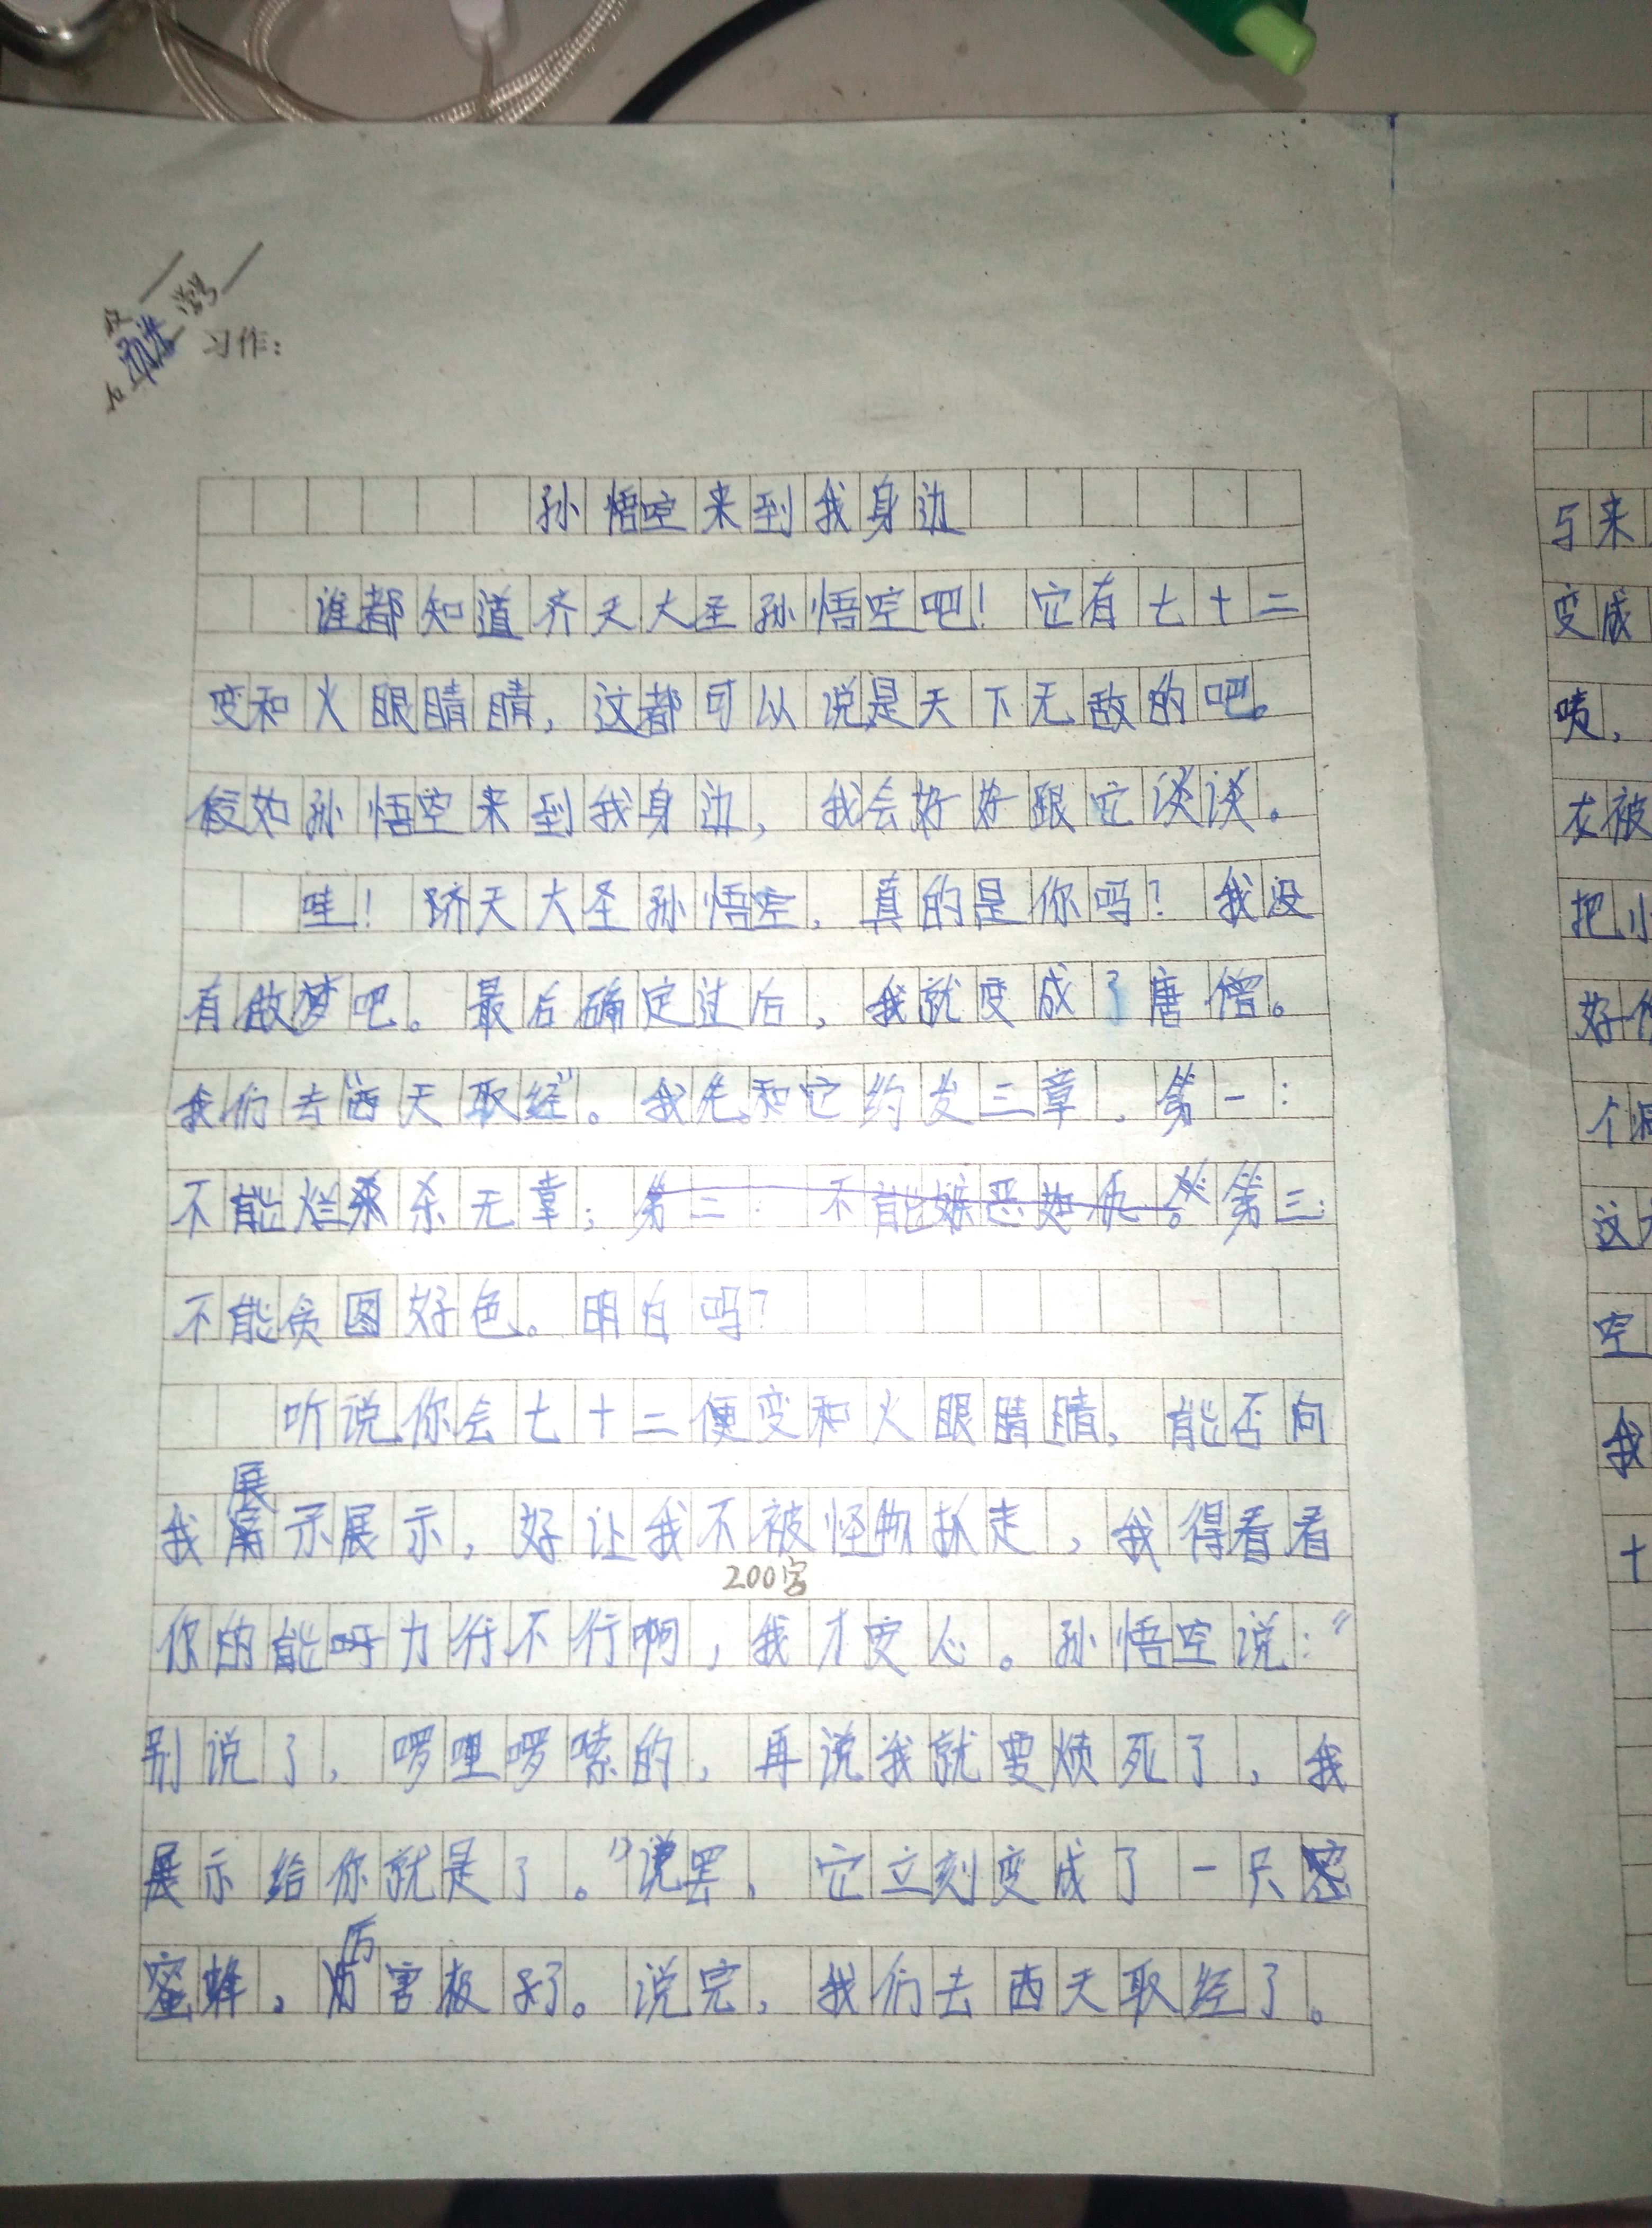 习作：
孙悟空来到我身边
谁都知道齐天大圣孙悟空吧！它有七十二
变和火眼睛睛，这都可以说是天下无敌的吧。
假如孙悟空来到我身边，我会好好跟它谈谈。
哇！跻天大圣孙悟空，真的是你吗？我没
有做梦吧。最后确定过后，我就变成了唐僧。
我们去“西天取经”。我先和它约发三章，第一：
不能烂杀无辜；第二：不能嫉恶如仇。第三：
不能贪图好色。明白吗？
听说你会七十二便变和火眼睛睛，能否向
我展示展示，好让我不被怪物抓走，我得看看
200字
你的能力行不行啊，我才安心。孙悟空说：“
别说了，啰哩啰嗦的，再说我就要烦死了，我
展示给你就是了。”说罢，它立刻变成了一只密
蜜蜂。厉害极了。说完，我们去西天取经了。
与来
变成
唛，
衣被
把小
好你
个
这
空
我
十